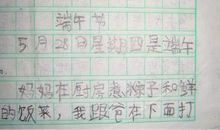 端午节
5月28日星期四是端午
妈妈在厨房煮粽子和鲜
的饭菜，我跟爸在下面打